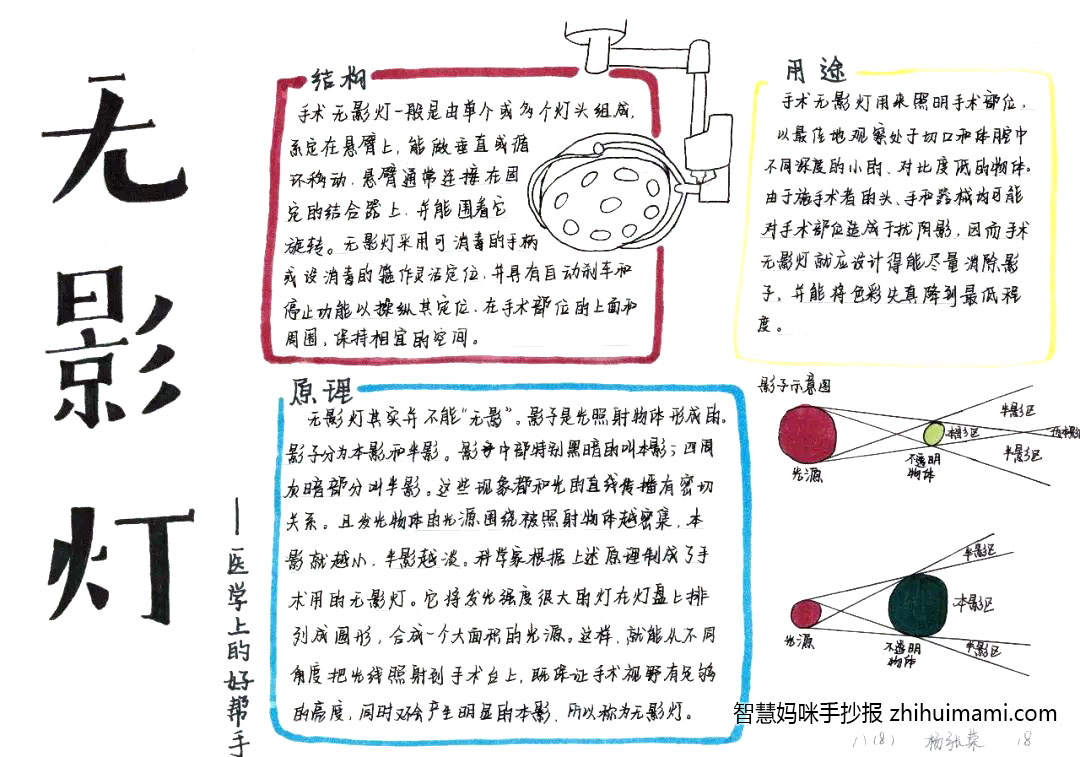 无影灯
——医学上的好帮手
结构
手术无影灯一般是由单个或多个灯头组成,
系定在悬臂上,能做垂直或循
环移动,悬臂通常连接在固
定的结合器上,并能围着它
旋转。无影灯采用可消毒的手柄
或设消毒的箍作灵活定位,并具有自动刹车和
停止功能以操纵其定位,在手术部位的上面和
周围,保持相宜的空间。
用途
手术无影灯用来照明手术部位,
以最佳地观察处于切口和体腔中
不同深度的小的、对比度低的物体。
由于施手术者的头、手和器械均可能
对手术部位造成干扰阴影,因而手术
无影灯就应设计得能尽量消除影
子,并能将色彩失真降到最低程
度。
原理
无影灯其实并不能“无影”。影子是光照射物体形成的。
影子分为本影和半影。影子中部特别黑暗的叫本影;四周
灰暗部分叫半影。这些现象都和光的直线传播有密切
关系。且发光物体的光源围绕被照射物体越密集,本
影就越小,半影越淡。科学家根据上述原理制成了手
术用的无影灯。它将发光强度很大的灯在灯盘上排
列成圆形,合成一个大面积的光源。这样,就能从不同
角度把光线照射到手术台上,既保证手术视野有足够
的亮度,同时又不会产生明显的本影,所以称为无影灯。
影子示意图
半影区
本影区
半影区
光源
不透明
物体
半影区
本影区
半影区
光源
不透明
物体
智慧妈咪手抄报 zhihuimami.com
八(8) 18